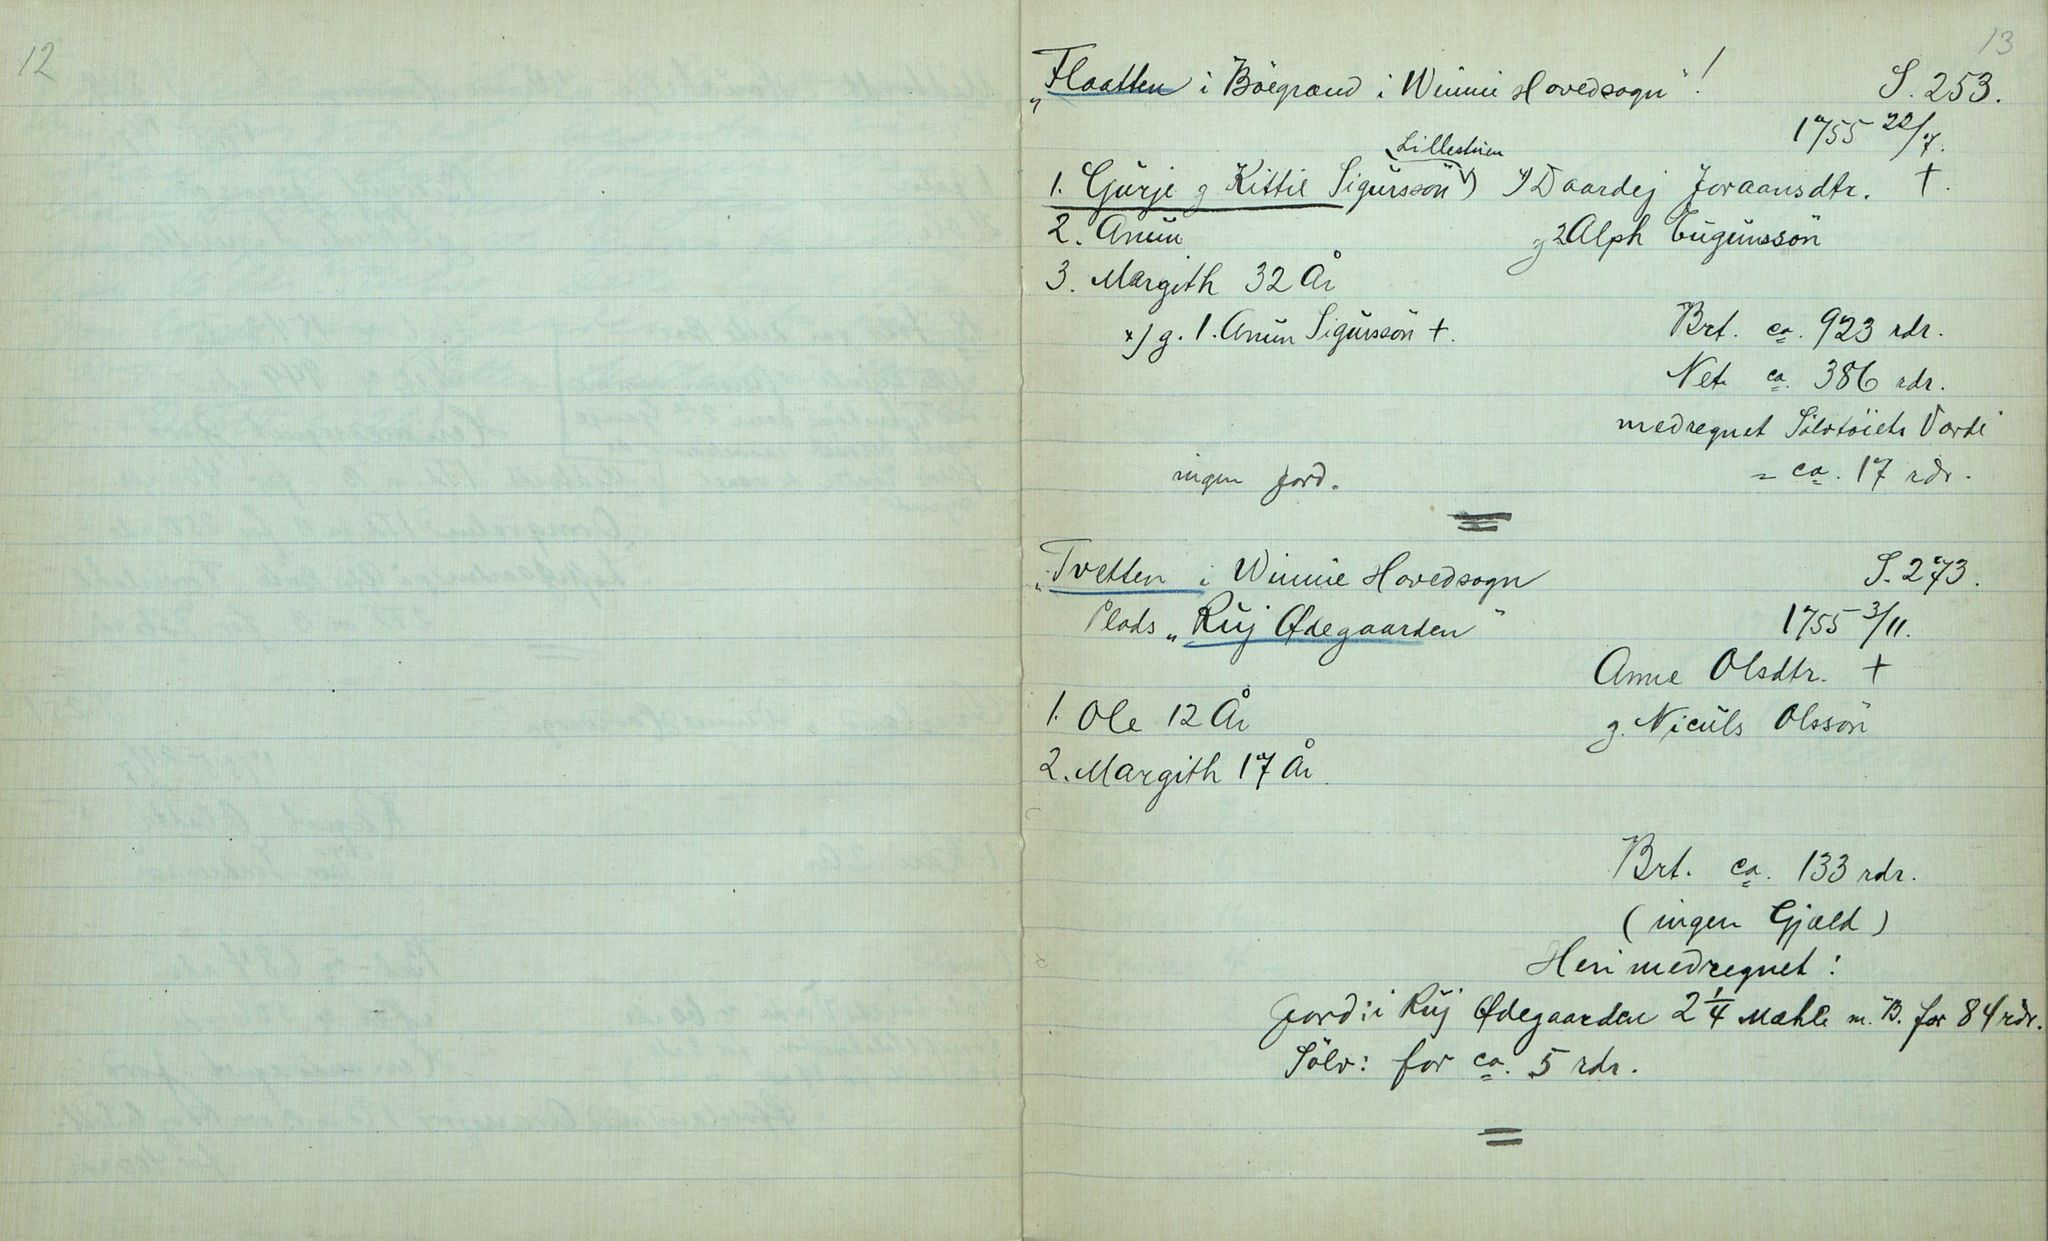 12
13
„Flaatten i Böegrænd i Winnie Hovedsogn"! S. 253.
1755 22/7.
Lillestuen
1. Gürje g Kittil Sigürssön) x) Daardej Joraansdtr. †.
2. Anün g 2 Alph Eugünssön
3. Margith 32 År
x) g. 1. Anün Sigürssön †. Brt. ca. 923 rdr.
Net. ca. 386 rdr.
medregnet Sölvtöiets Værdi
ingen jord. = ca. 17 rdr.
„Tvetten i Winnie Hovedsogn S. 273.
Plads „Rüj Ødegaarden" 1755 3/11.
Anne Olsdtr. †
1. Ole 12 År g. Nicüls Olssön
2. Margith 17 År
Brt. ca. 133 rdr.
(ingen Gjæld)
Heri medregnet:
jord: i Rüj Ødegaarden 2 1/4 Mæhle m. B. for 84 rdr.
Sölv: for ca. 5 rdr.